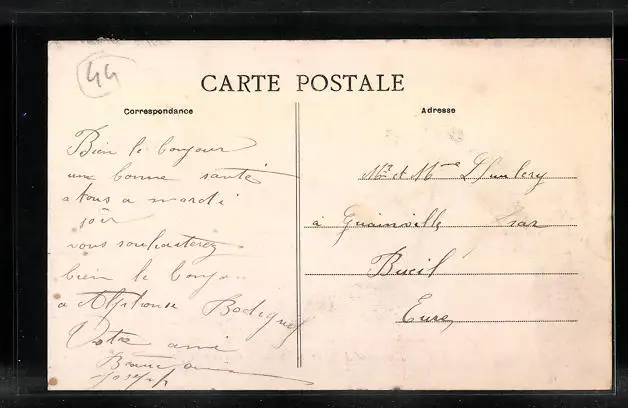 44
CARTE POSTALE
Correspondance
Bien le bonjour
une bonne santé
a tous a mardi
soir
vous souhaiterez
bien le bonjo
a Alphonse Bodiguel
Votre ami
Joseph
Adresse
Mr et Mme
à Guainville par
Bueil
Eure